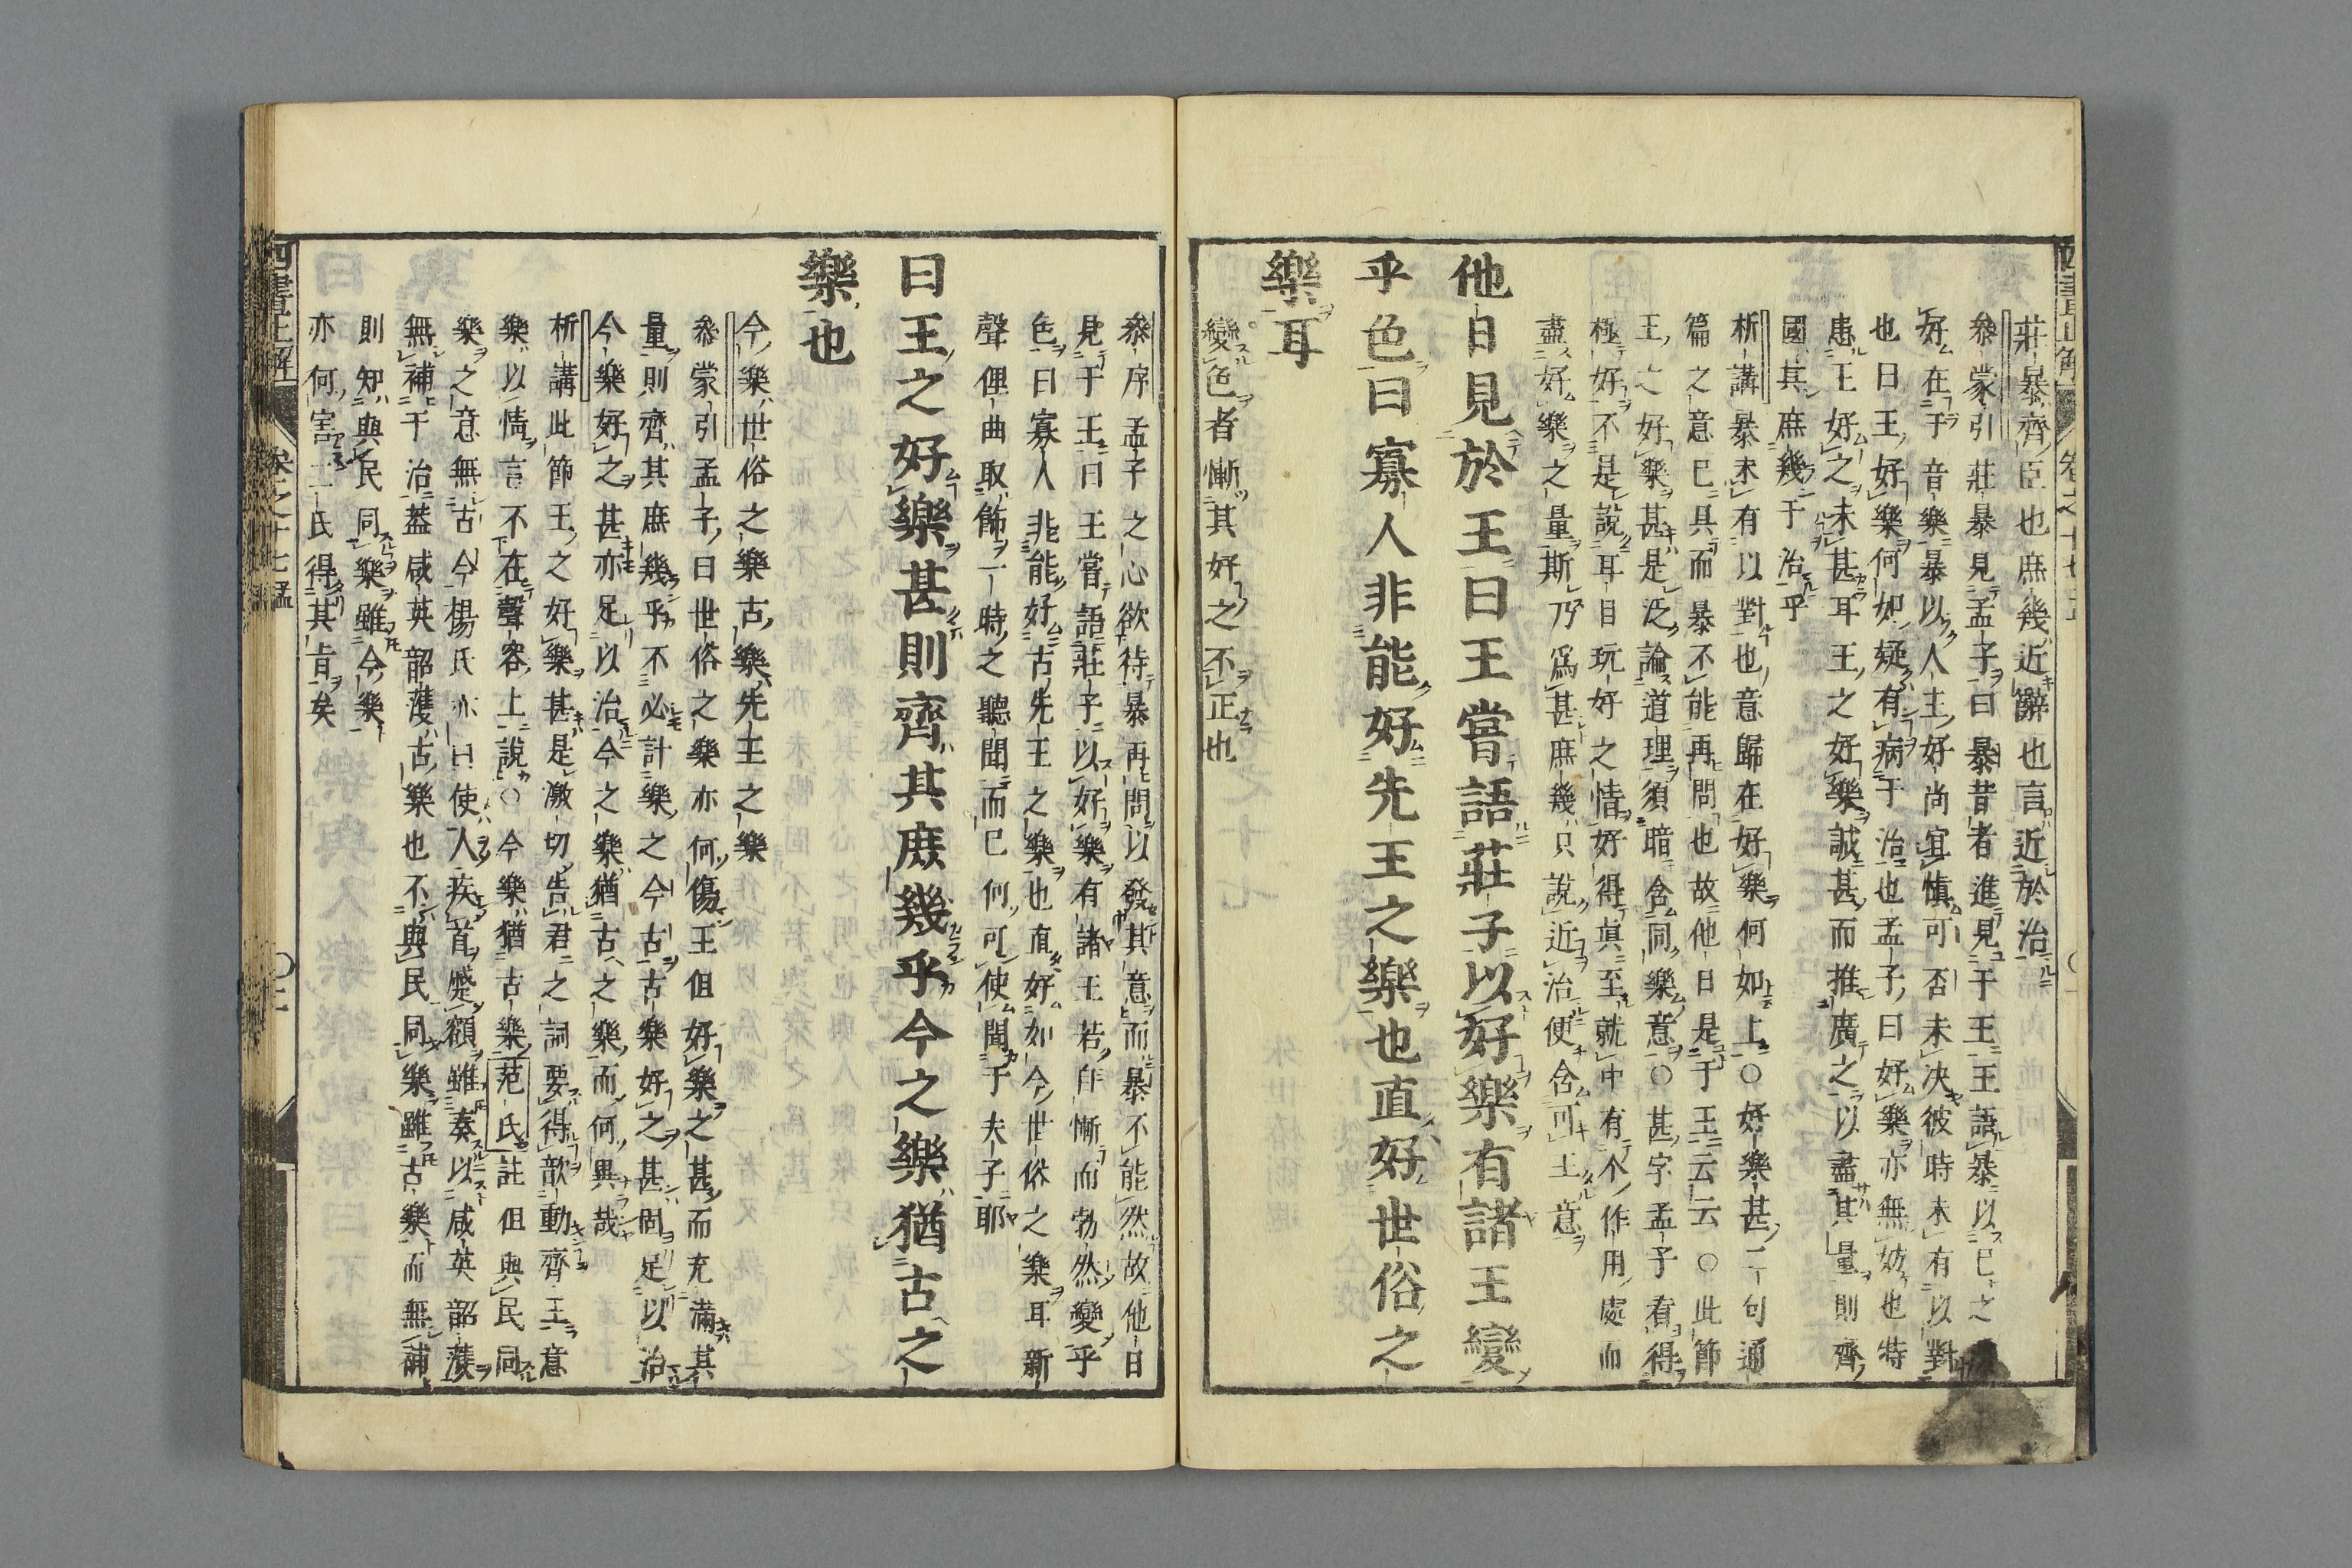 莊暴齊臣也庶幾近辭也言近於治
參蒙引莊暴見孟子曰暴昔者進見于王王語暴以已之
好在于音樂暴以人主好尚宜慎可否未决彼時未有以對
也曰王好樂何如疑有病于治也孟子曰好樂亦無妨也特
患王好之未甚耳王之好樂誠甚而推廣之以盡其量則齊
國其庶幾于治乎
析講暴未有以對也意歸在好樂何如上○好樂甚二句通
篇之意已具而暴不能再問也故他日是于王云云○此節
王之好樂甚是泛論道理須暗含同樂意○甚字孟子看得
極好不是說耳目玩好之情好得眞至就中有个作用處而
盡好樂之量斯乃爲甚庶幾只說近治便含可王意
他日見於王曰王嘗語莊子以好樂有諸王變
乎色曰寡人非能好先王之樂也直好世俗之
樂耳
變色者慚其好之不正也
參序孟子之心欲待暴再問以發其意而暴不能然故他日
見于王曰王嘗語莊子以好樂有諸王若自慚而勃然變乎
色曰寡人非能好古先王之樂也直好如今世俗之樂耳新
聲俚曲取飾一時之聽聞而已何可使聞于夫子耶
曰王之好樂甚則齊其庶幾乎今之樂猶古之
樂也
今樂世俗之樂古樂先王之樂
參蒙引孟子曰世俗之樂亦何傷王但好樂之甚而充滿其
量則齊其庶幾乎不必計樂之今古古樂好之甚固足以治
今樂好之甚亦足以治今之樂猶古之樂而何異哉
析講此節王之好樂甚是激切告君之詞要得歆動齊王意
樂以情言不在聲容上說○今樂猶古樂范氏註但與民同
樂之意無古今楊氏亦曰使人疾首蹙頞雖奏以咸英韶濩
無補于治蓋咸英韶濩古樂也不與民同樂雖古樂而無補
則知與民同樂雖今樂
亦何害二氏得其旨矣